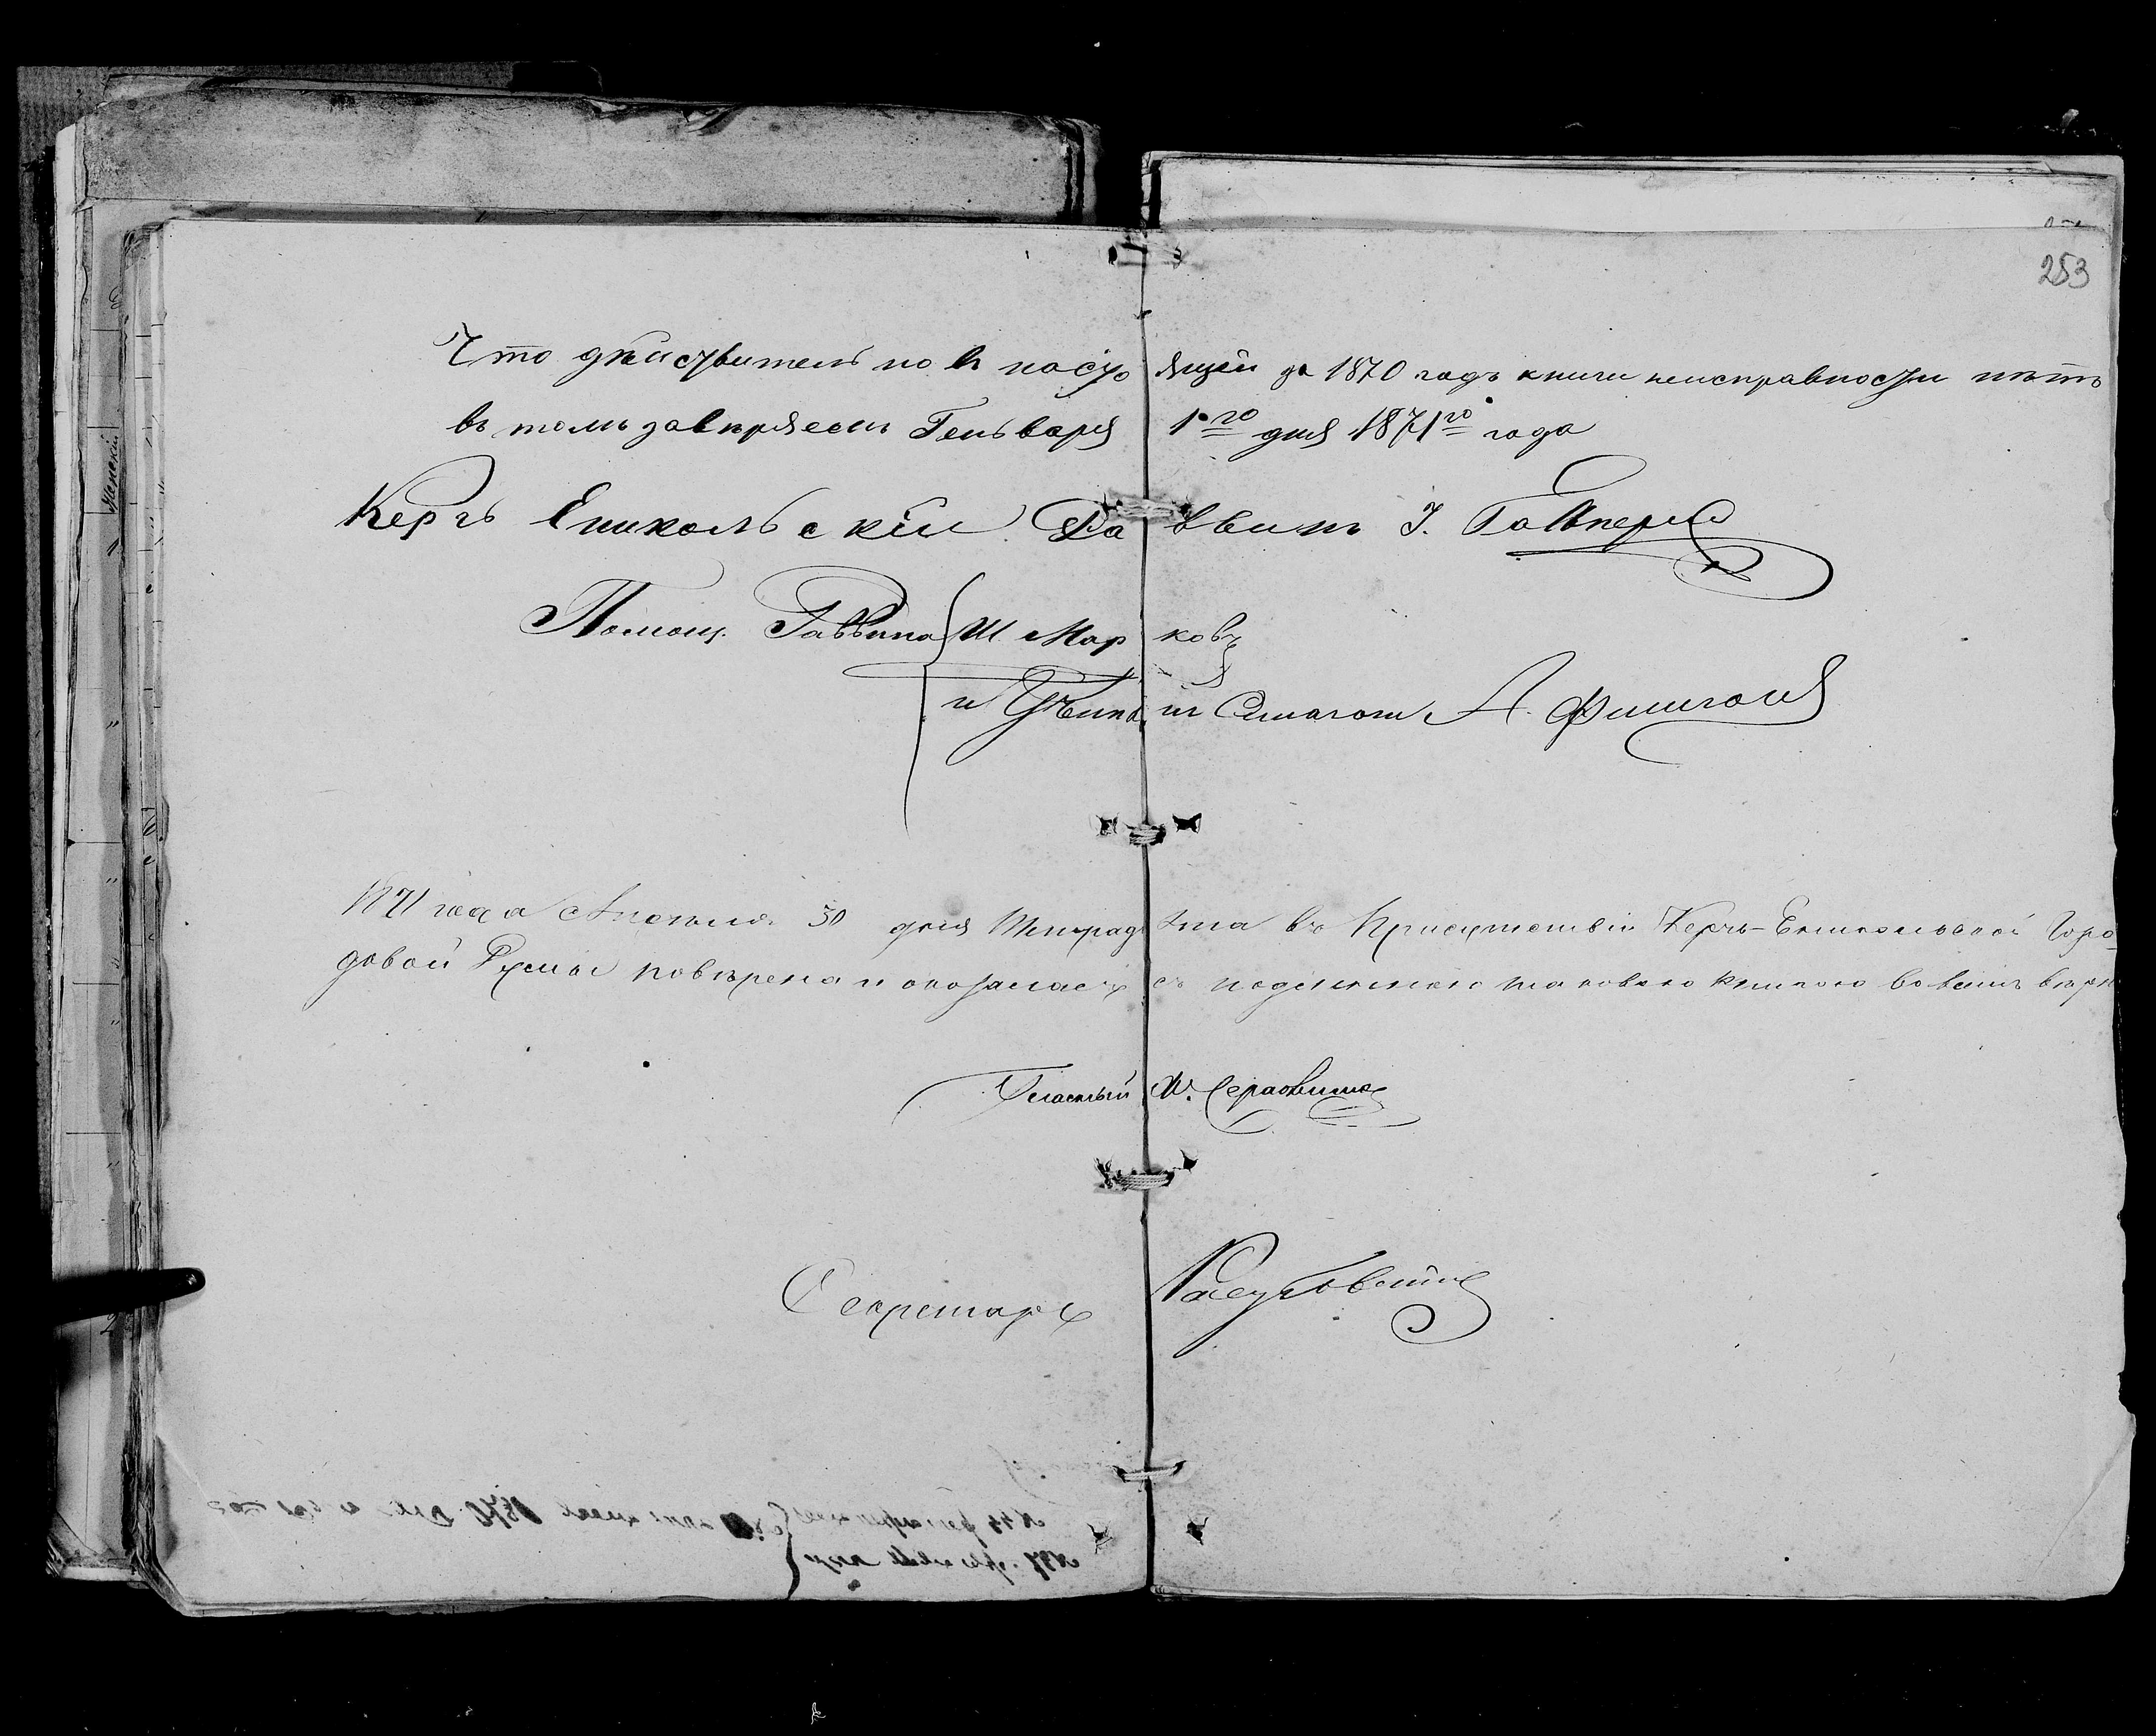 253
Что дѣйствительно въ настоящей за 1870 годъ книги неисправности нѣтъ
въ томъ завѣряемъ Генваря 1го дня 1871го года
Керчь Еникольскій Раввинъ І. Гальперин
Помощ. Раввина Ш. Марковъ
и Ученый Синагоги А.
1871 года Апреля 30 дня тетрадь эта въ Присутствіи Керчь-Еникольской Горо-
довой Думы повѣрена и оказалась съ подлинною таковою книгою во всемъ вѣрн
Гласный
Секретарь
Женскій